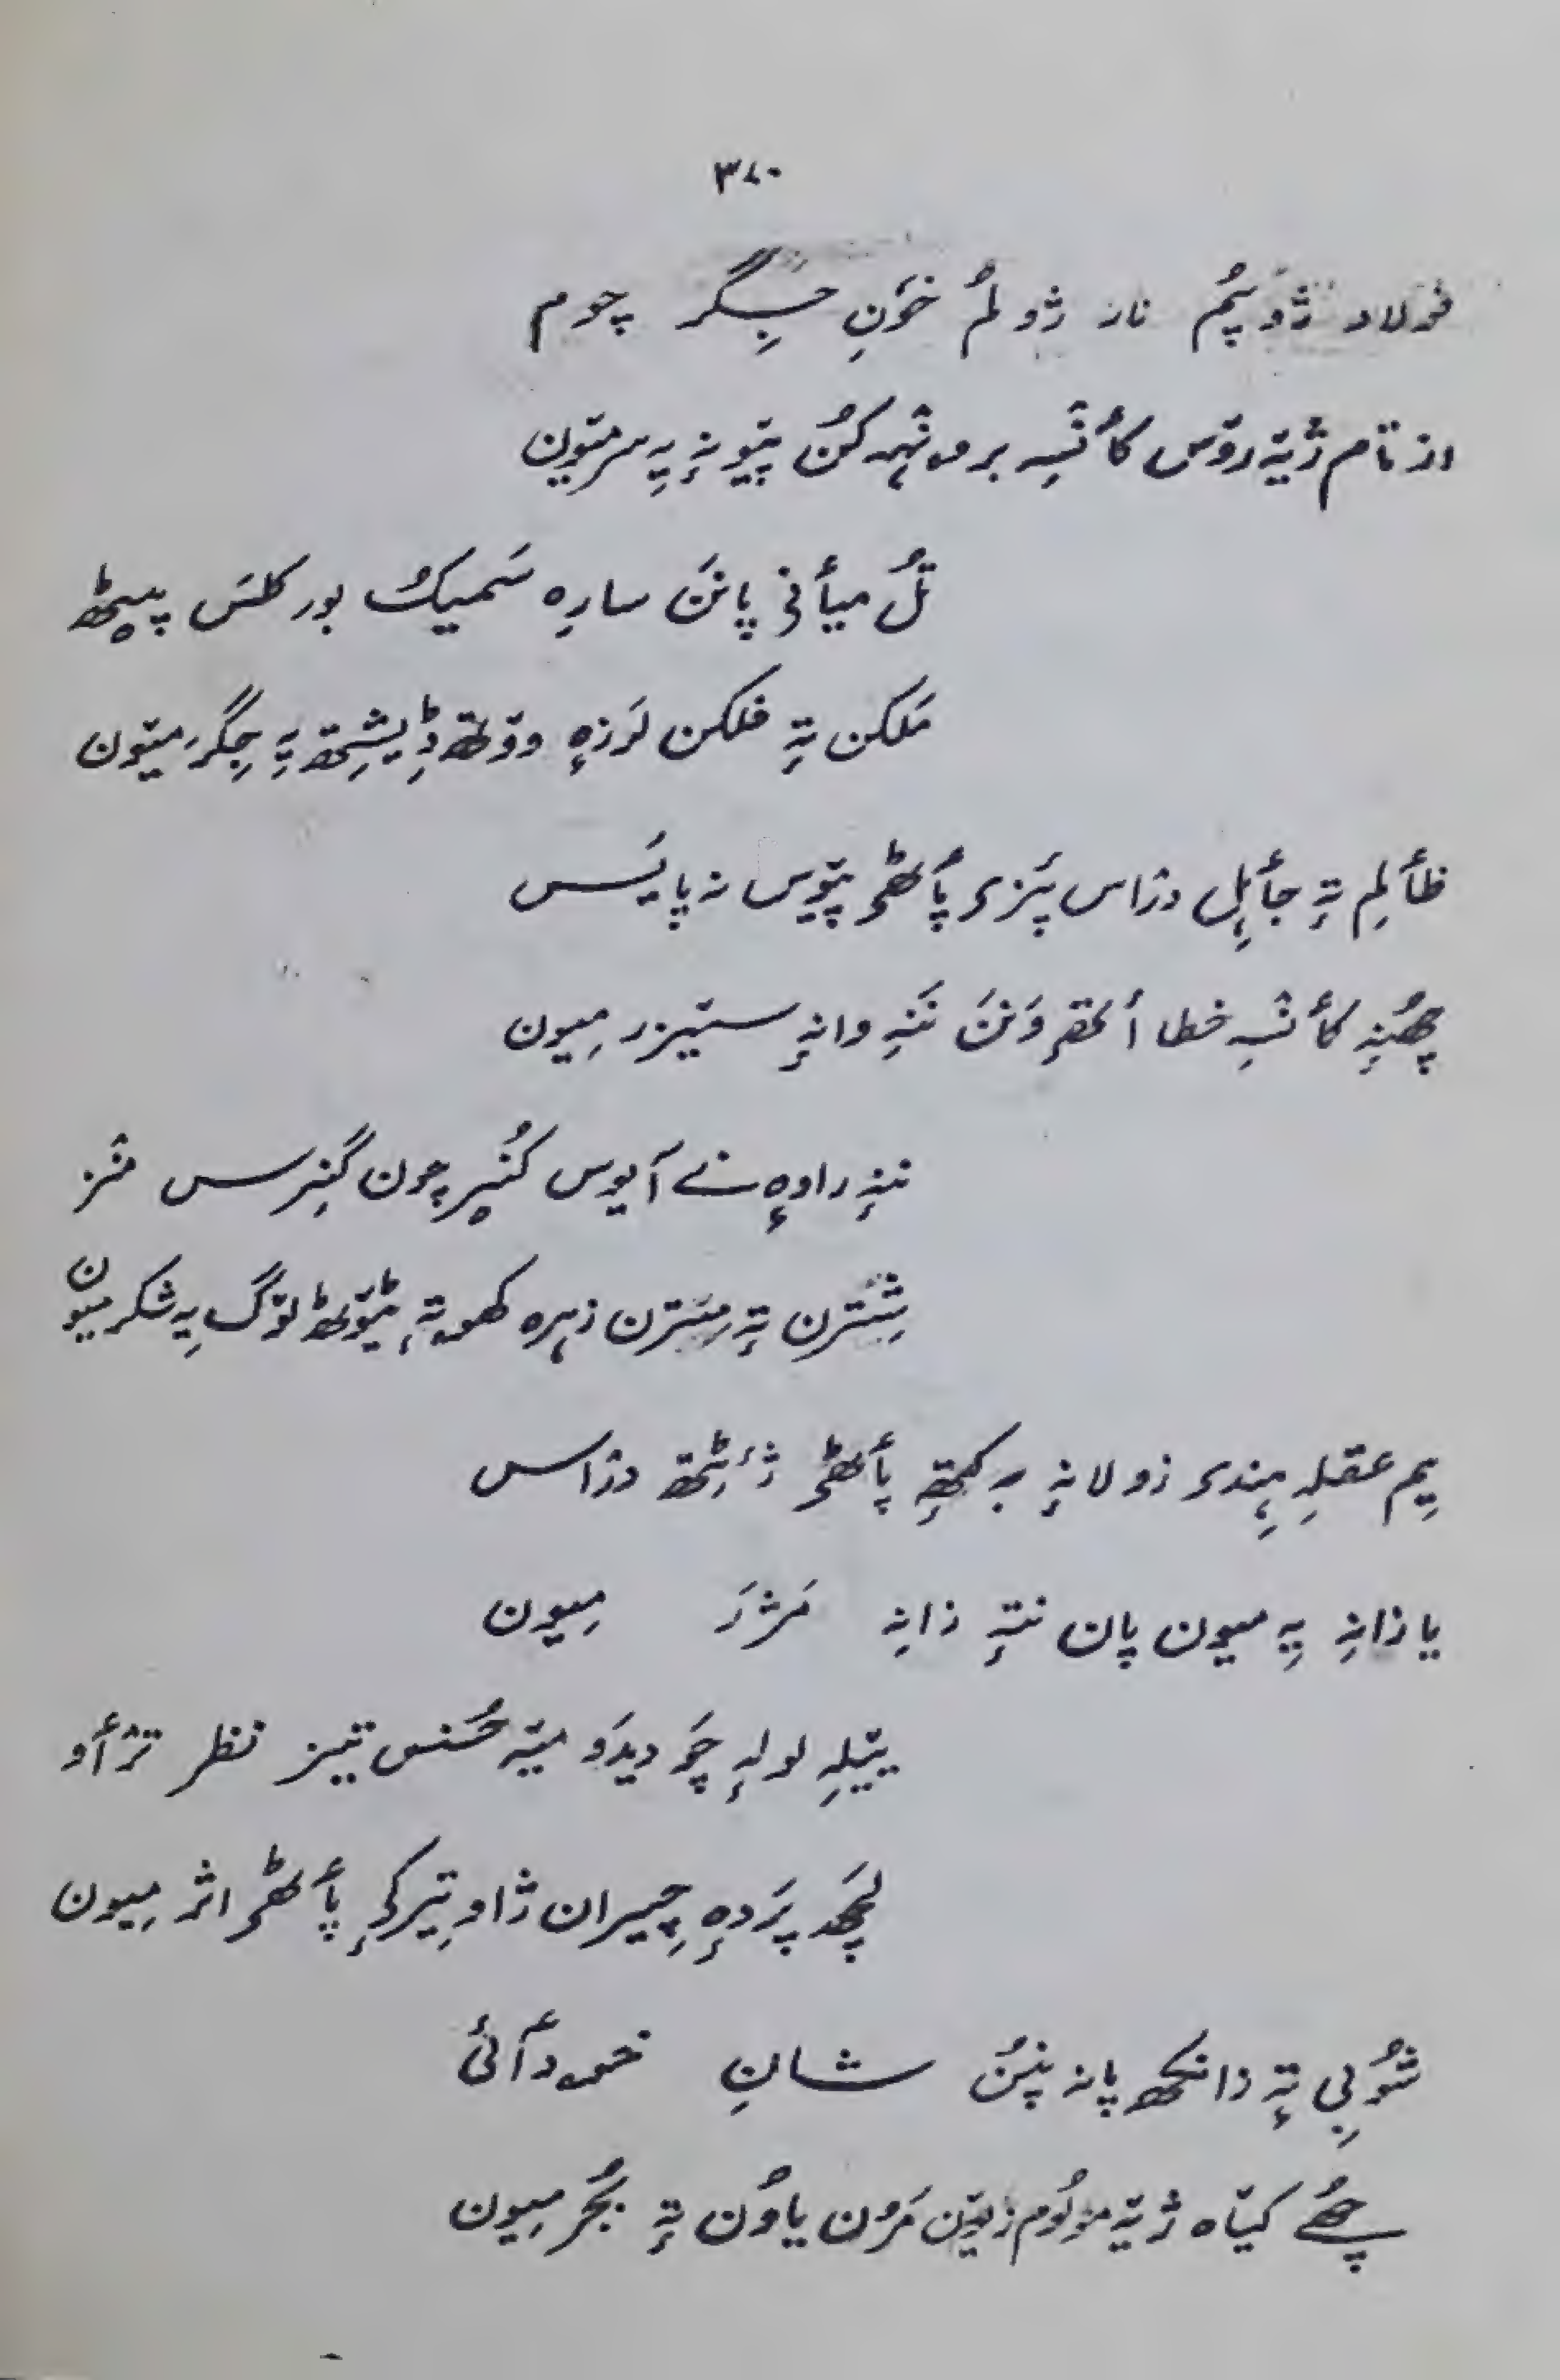 ۳۷۰
فولاد ژوٚپُم نار ژولُم خوٗنِ جِگر چوم
از تام ژیٚتہٕ روٚس کٲنٛسہِ برونٛہہ کُن پیٚو نہٕ یہِ سر میٚون
تُل میٲنۍ پانَن سارِہ سَمیکُ بور کلَس پیٚٹھ
مَلکن تہٕ فلکن لرزہٕ ووٚتھ ڈیٖشِتھ یہِ جِگَر میٚون
ظٲلِم تہٕ جٲہِل دزاس پَزۍ پٲٹھۍ پیٚوس نہ پایَس
چھُنہٕ کٲنٛسہِ خطا اَتھہٕ وَنَن نَنہِ وانہٕ ستیزر میون
ننہِ راوہٕ نے آیوس کُنُے چون گَنِرس منٛز
شِتَرن تہٕ مِتَرن زہرہ کھوتہٕ ٹیوٚٹھ لوٚگ یہِ شکر میون
یِم عقلہِ ہِندۍ زولانہٕ بہ کَتھہٕ پٲٹھۍ ژٔٹِتھ دزاس
یا زانہِ یہِ میون پان نتہٕ زانہِ مَژَر میون
ییٚلہِ لولہٕ چَو دیدَو میٚتہِ حُسنس تیز نظر ترٛٲو
لچھ پَردہٕ چیران ژاو تیٖرکۍ پٲٹھۍ اثر میون
ژوٗبی تہٕ زانکھ پانہ پنُن شانِ خودآئی
چھُے کیٚاہ ژیٚتہٕ موٚلوٗم زیوٚن مَرُن یاوُن تہٕ بُجَر میون